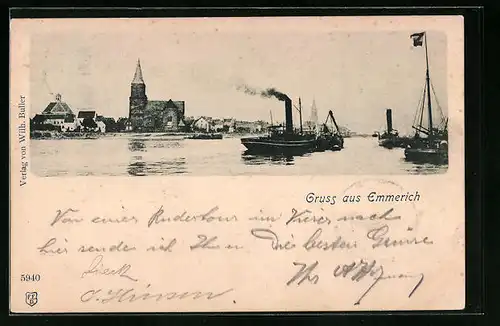 Verlag von Wilh. Buller
Gruss aus Emmerich
Von einer Rudertour im Vierer nach
hier sende ich Ihnen die besten Grüsse
Ihr
5940